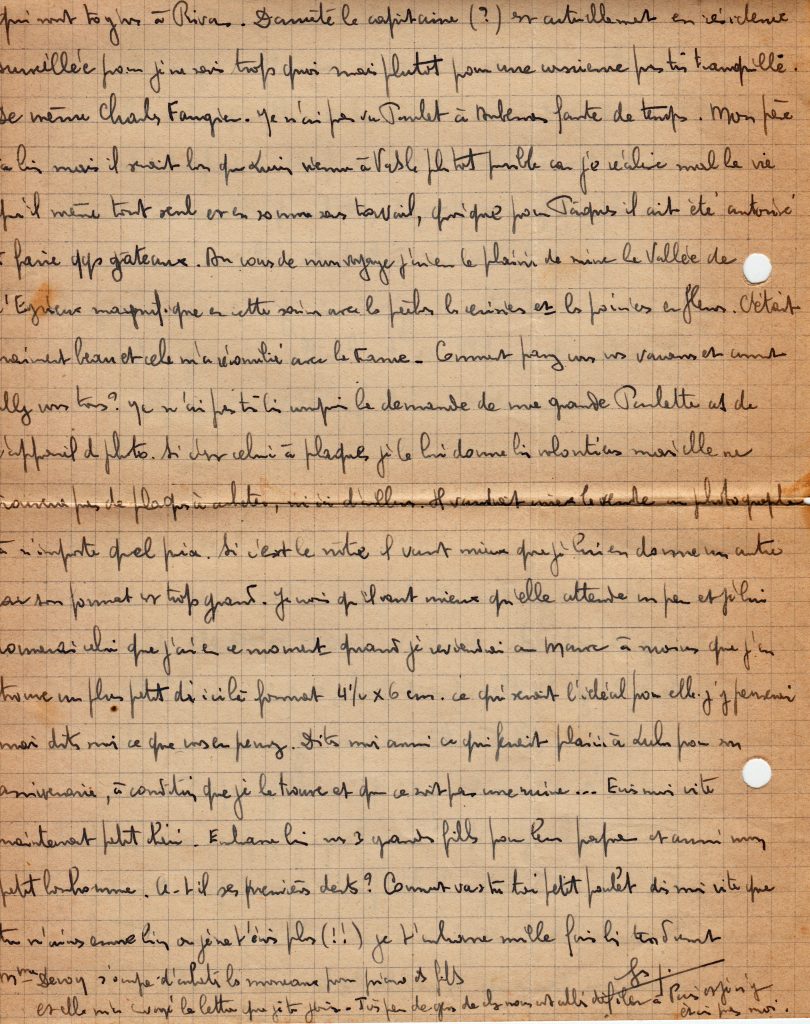 qui sont toujrs à Rivas. Danièle le capitaine (?) est actuellement en résidence
surveillée pour je ne sais trop quoi mais plutôt pour une ancienne pas très tranquille.
De même Charles Faugier. Je n'ai pas vu Poulet à Aubenas faute de temps. Mon père
bien mais il serait bon que vienne à Vals le plutôt possible car je réalise mal la vie
qu'il mène tout seul et en somme sans travail, quoique pour Pâques il ait été autorisé
à faire qqs gâteaux. Au cours de mon voyage j'ai eu le plaisir de suivre la Vallée de
l'Eyrieux magnifique en cette saison avec les pêches les cerisiers et les poiriers en fleurs. C'était
vraiment beau et cela m'a réconcilié avec la France - Comment passez vous vos vacances et comment
allez vous tous? Je n'ai pas très bien compris la demande de ma grande Paulette au de
l'appareil de photo. Si c'est celui à plaques je le lui donne bien volontiers mais elle ne
trouvera pas de plaques à acheter, ni ici d'ailleurs. Il vaudrait mieux le vendre un photographe
à n'importe quel prix. Si c'est le nôtre il vaut mieux que je lui en donne un autre
car son format est trop grand. Je crois qu'il vaut mieux qu'elle attende un peu et je lui
donnerai celui que j'ai en ce moment quand je reviendrai au Maroc à moins que j'en
trouve un plus petit d'ici là format 4½ x 6 cm. ce qui serait l'idéal pour elle. j'y penserai
mais dites moi ce que vous en pensez. Dites moi aussi ce qui ferait plaisir à Lulu pour son
anniversaire, à condition que je le trouve et que ce soit pas une ruine... Ecris moi vite
maintenant petit Kiki. Embrasse bien nos 3 grandes filles pour leur papa et aussi mon
petit bonhomme. A-t-il ses premières dents? Comment vas tu toi petit poulet dis moi vite que
tu m'aimes encore bien ou je ne t'écris plus (!!) je t'embrasse mille fois bien tendrement
Mme s'occupe d'acheter les morceaux pour piano des filles
et elle m'a envoyé la lettre que je te joins - Très peu de gens de chez nous ont allés défiler à Paris et
et ni pas moi.